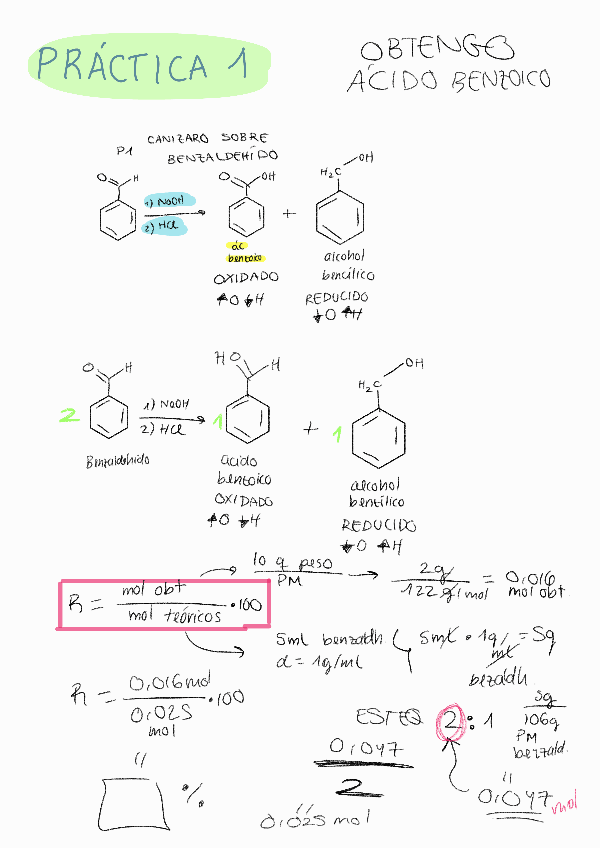 PRÁCTICA 1
OBTENGO
ÁCIDO BENZOICO
P1 CANIZARO SOBRE
BENZALDEHÍDO
O H
1) NaOH
2) HCl
O OH
+
H₂C OH
ác
benzoico
OXIDADO
↑O ↓H
alcohol
bencílico
REDUCIDO
↓O ↑H
2
O H
Benzaldehido
1) NaOH
2) HCl
1
H O H
ácido
benzoico
OXIDADO
↑O ↓H
+
1
H₂C OH
alcohol
bentílico
REDUCIDO
↓O ↑H
R = mol obt / mol teóricos • 100
10 q peso / PM
2g / 122 g/mol = 0,016 mol obt.
5ml benzaldh
d = 1g/ml
5ml • 1g/ml = 5g
bezaldh.
R = 0,016 mol / 0,025 mol • 100
"
%
ESTEQ 2:1
5g / 106g
PM
benzald.
"
0,047 mol
0,047 / 2
"
0,025 mol